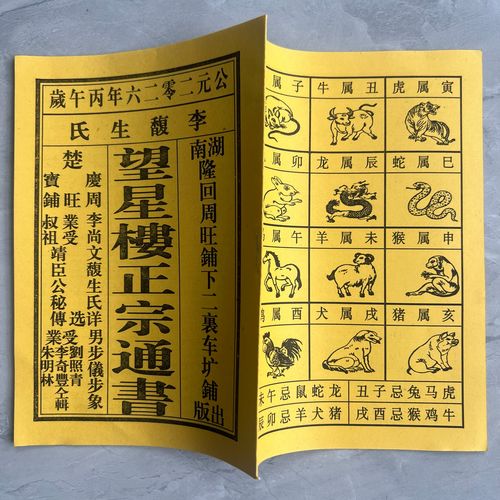 公元二零二六年丙午歲
李馥生氏
湖南隆回周旺鋪下二裏车圹鋪出版
望星樓正宗通書
慶周李尚文馥生氏洋男步儀步象
楚旺業受选受劉照青李奇豐仝輯
寶鋪叔祖靖臣公秘傳業朱明林
属子 牛属丑 虎属寅
属卯 龙属辰 蛇属巳
属午 羊属未 猴属申
鸡属酉 犬属戌 猪属亥
未午忌鼠蛇龙 丑子忌兔马虎
辰卯忌羊犬猪 戌酉忌猴鸡牛